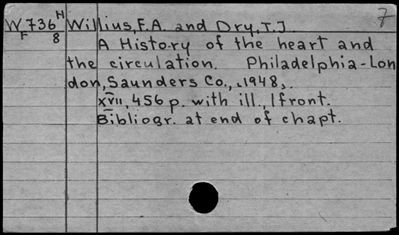 7
W736H Willius, F.A. and Dry, T.J.
F 8 A History of the heart and
the circulation. Philadelphia-Lon
don, Saunders Co., 1948,.
XVII, 456 p. with ill., 1front.
Bibliogr. at end of chapt.